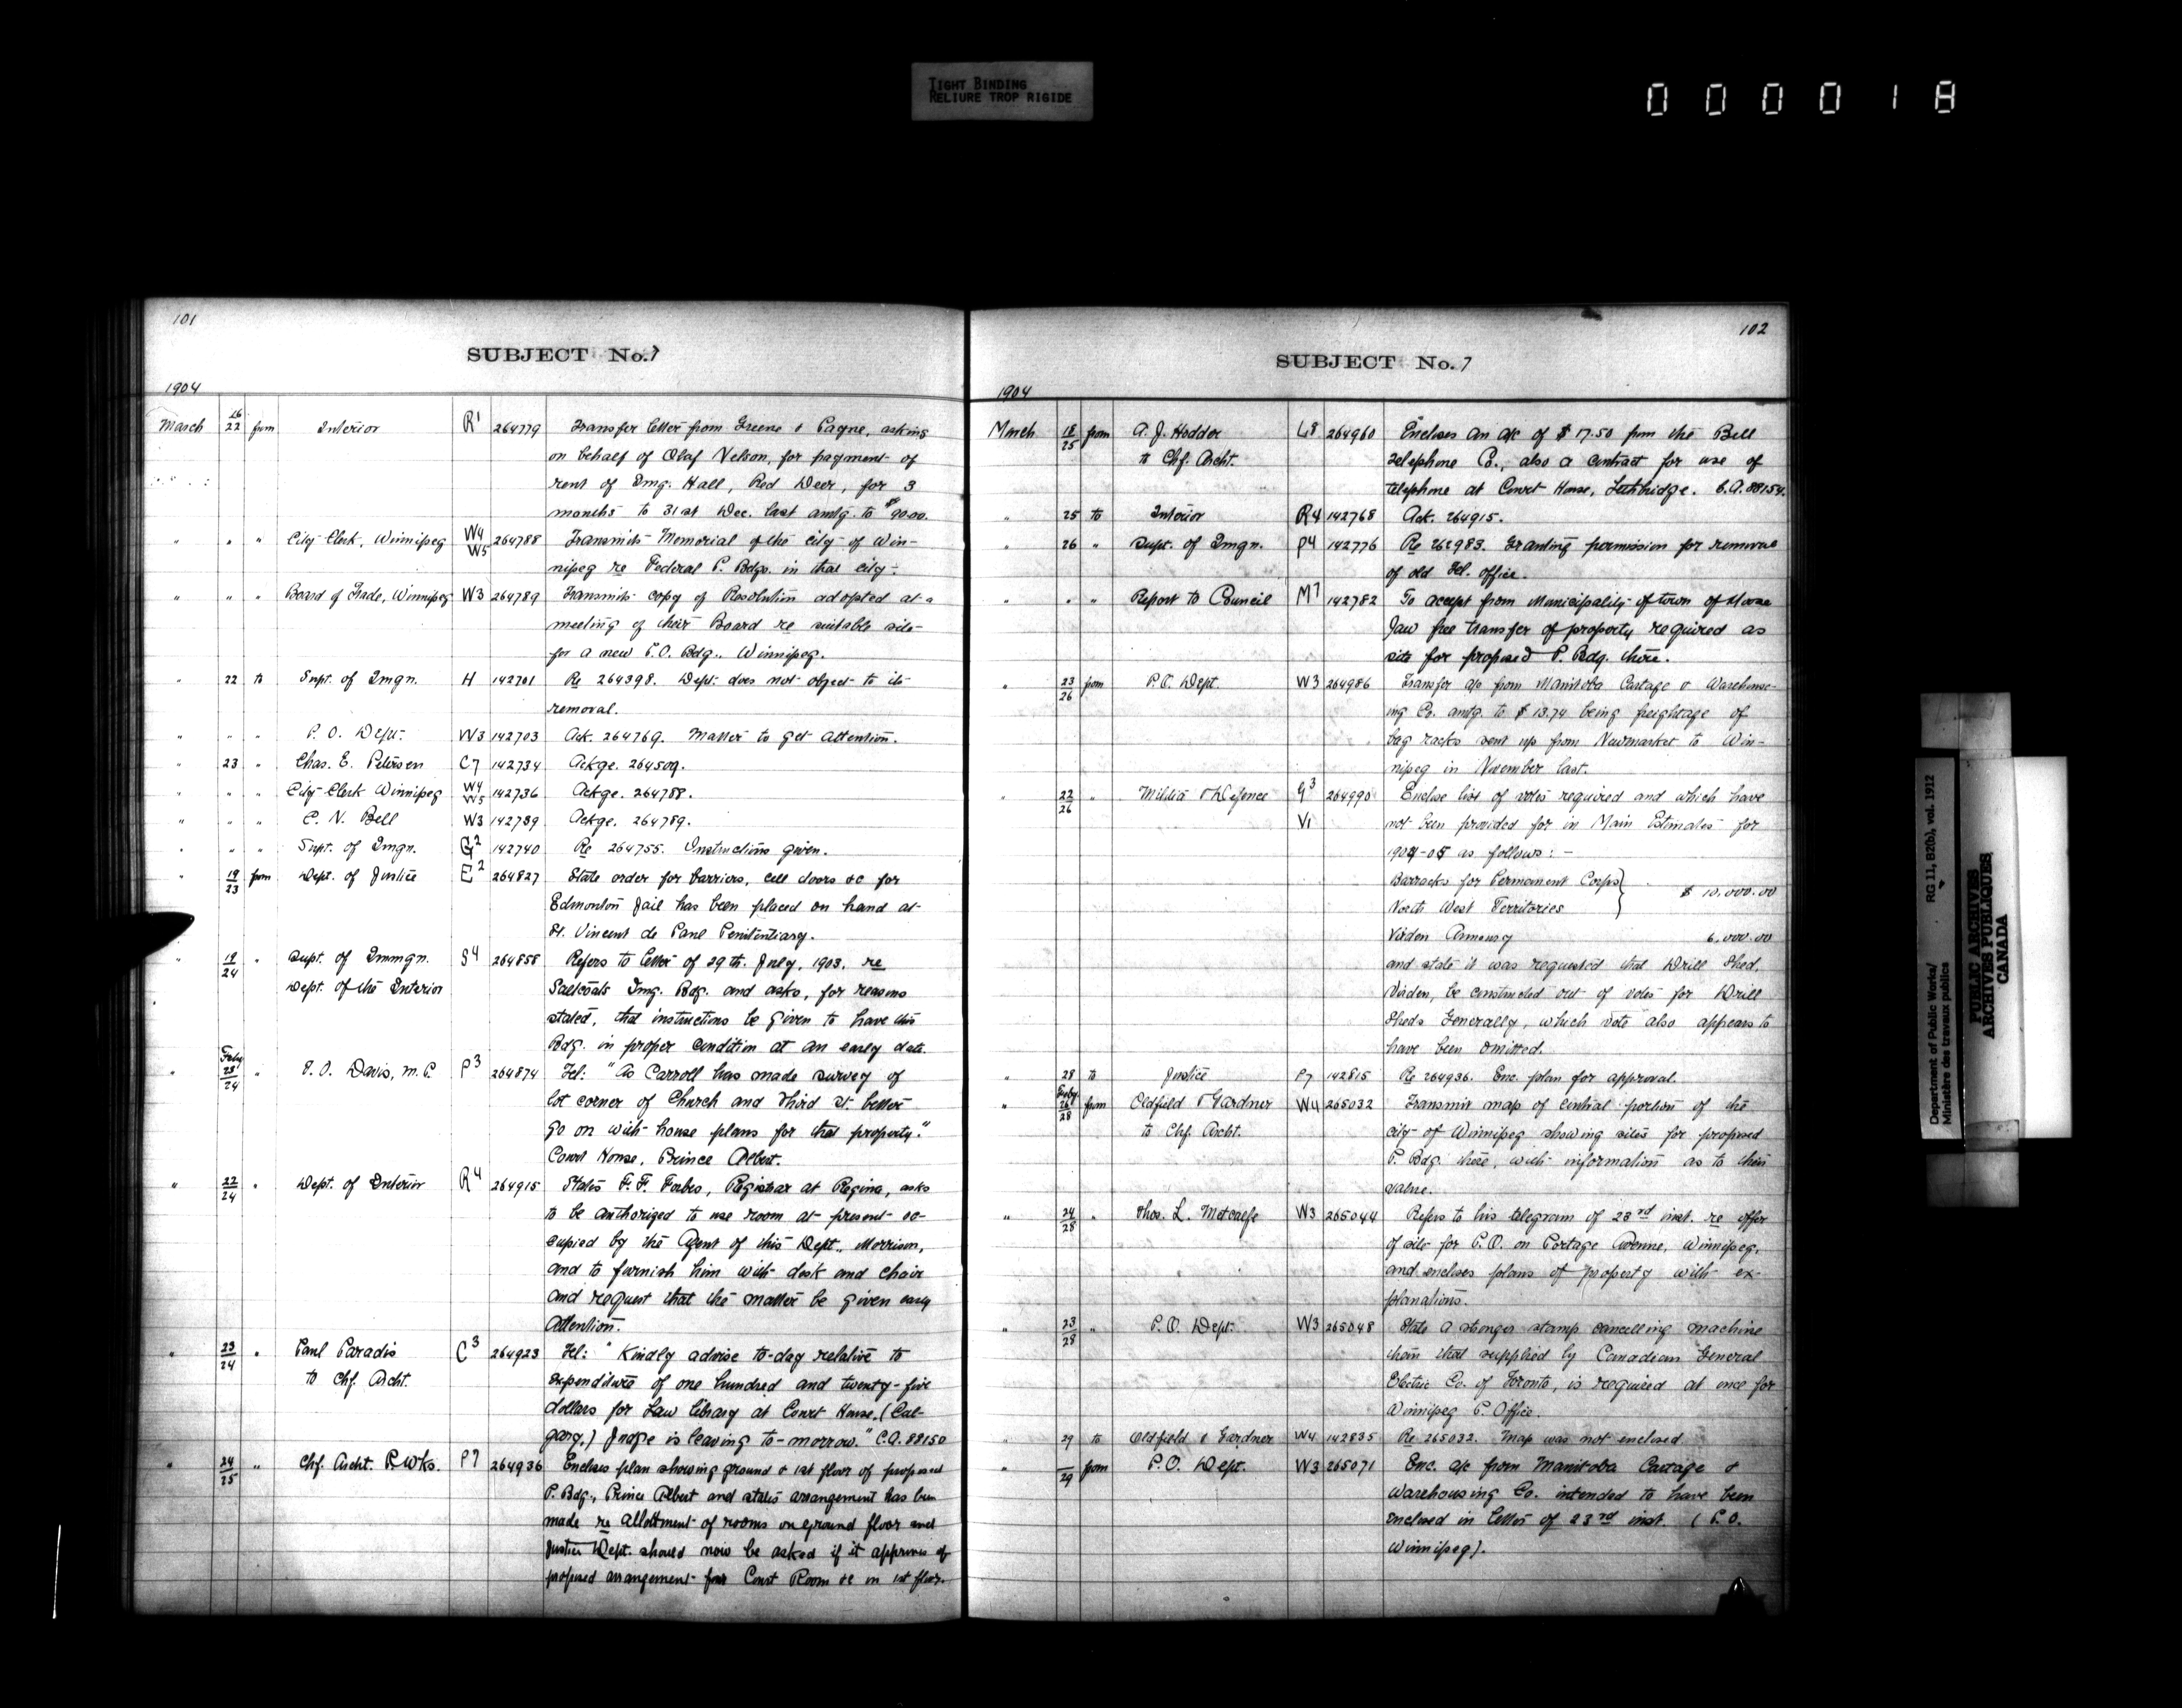 TIGHT BINDING
RELIURE TROP RIGIDE
000018
101
SUBJECT No. 7
1904
March 16/22 from Interior R1 264779 Transfer letter from Greene & Payne, asking
on behalf of Olaf Nelson, for payment of
rent of Img. Hall, Red Deer, for 3
months to 31st Dec. last amtg. to $90.00.
" " " City Clerk, Winnipeg W4 W5 264788 Transmits Memorial of the City of Win-
nipeg re Federal P. Bdgs. in that city.
" " " Board of Trade, Winnipeg W3 264789 Transmits copy of Resolution adopted at a
meeting of their Board re suitable site
for a new P.O. Bdg., Winnipeg.
" 22 to Supt. of Imgn. H 142701 Re 264398. Dept. does not object to its
removal.
" " " P. O. Dept. W3 142703 Ack. 264769. Matter to get attention.
" 23 " Chas. E. Petersen C7 142734 Ackge. 264509.
" " " City Clerk Winnipeg W4 W5 142736 Ackge. 264788.
" " " C. N. Bell W3 142739 Ackge. 264789.
" " " Supt. of Imgn. G2 142740 Re 264755. Instructions given.
" 19/23 from Dept. of Justice E2 264827 State order for barriers, cell doors &c for
Edmonton Jail has been placed on hand at
St. Vincent de Paul Penitentiary.
" 19/24 " Supt. of Immgn. S4 264858 Refers to letter of 29th. July, 1903, re
Dept. of the Interior Saltcoats Img. Bdg. and asks, for reasons
stated, that instructions be given to have this
Bdg. in proper condition at an early date.
" Feby 28/24 " T. O. Davis, M.P. P3 264874 Tel: "As Carroll has made survey of
lot corner of Church and Third St. better
go on with house plans for that property."
Court House, Prince Albert.
" 22/24 " Dept. of Interior R4 264915 States F. F. Forbes, Registrar at Regina, asks
to be authorized to use room at present oc-
cupied by the Agent of this Dept., Morrison,
and to furnish him with desk and chair
and request that the matter be given early
attention.
" 23/24 " Paul Paradis C3 264923 Tel: "Kindly advise to-day relative to
to Chf. Archt. expenditure of one hundred and twenty-five
dollars for Law Library at Court House, (Cal-
gary.) Judge is leaving to-morrow." C.A. 88150
" 24/25 " Chf. Archt. P. Wks. P7 264936 Encloses plan showing ground & 1st floor of proposed
P. Bdg., Prince Albert and states arrangement has been
made re allottment of rooms on ground floor and
Justice Dept. should now be asked if it approves of
proposed arrangement for Court Room &c on 1st floor.
102
SUBJECT No. 7
1904
March 18/25 from A. J. Hodder L8 264960 Encloses an a/c of $17.50 from the Bell
to Chf. Archt. Telephone Co., also a contract for use of
telephone at Court House, Lethbridge. C.A. 88154.
" 25 to Interior R4 142768 Ack. 264915.
" 26 " Supt. of Imgn. P4 142776 Re 262983. Granting permission for removal
of old Tel. office.
" " " Report to Council M7 142782 To accept from Municipality of town of Moose
Jaw free transfer of property required as
site for proposed P. Bdg. there.
" 23/26 from P.O. Dept. W3 264986 Transfer a/c from Manitoba Cartage & Warehous-
ing Co. amtg. to $13.74 being freightage of
bag racks sent up from Newmarket to Win-
nipeg in November last.
" 22/26 " Militia & Defence G3 264990 Enclose list of votes required and which have
V1 not been provided for in Main Estimates for
1904-05 as follows: -
Barracks for Permanent Corps }
North West Territories } $ 10,000.00
Virden Armoury 6,000.00
and state it was requested that Drill Shed,
Virden, be constructed out of votes for Drill
Sheds Generally, which vote also appears to
have been omitted.
" 28 to Justice P7 142815 Re 264936. Enc. plan for approval.
" Feby 26/28 from Oldfield & Gardner W4 265032 Transmit map of central portion of the
to Chf. Archt. city of Winnipeg showing sites for proposed
P. Bdg. there, with information as to their
value.
" 24/28 " Thos. L. Metcalfe W3 265044 Refers to his telegram of 23rd inst. re offer
of site for P.O. on Portage Avenue, Winnipeg,
and encloses plans of property with ex-
planations.
" 23/28 " P.O. Dept. W3 265048 State a stronger stamp cancelling machine
than that supplied by Canadian General
Electric Co. of Toronto, is required at once for
Winnipeg P. Office.
" 29 to Oldfield & Gardner W4 142835 Re 265032. Map was not enclosed
" /29 from P.O. Dept. W3 265071 Enc. a/c from Manitoba Cartage &
Warehousing Co. intended to have been
enclosed in letter of 23rd inst. (P.O.
Winnipeg).
Department of Public Works/ RG 11, B2(b), vol. 1912
Ministère des travaux publics
PUBLIC ARCHIVES
ARCHIVES PUBLIQUES
CANADA